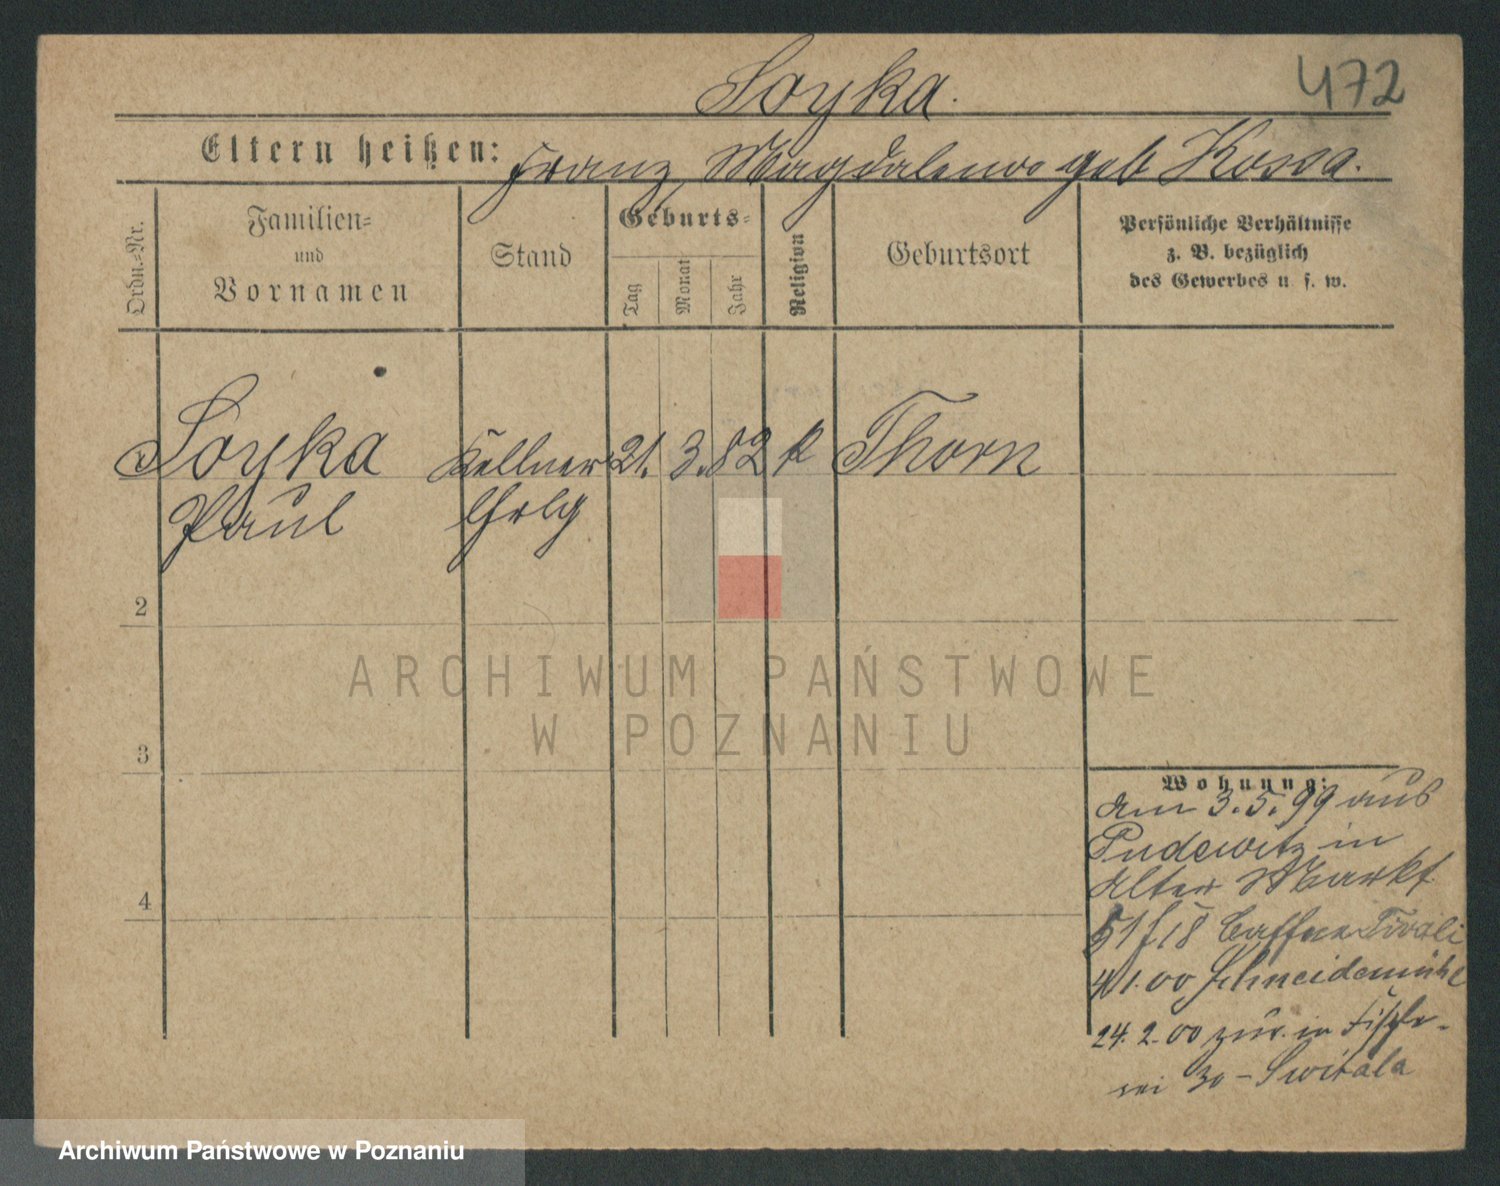 472
Soyka.
Eltern heißen: Franz, Magdalena geb Kossa.
Ordn.=Nr.
Familien=
und
Vornamen
Stand
Geburts=
Tag
Monat
Jahr
Religion
Geburtsort
Persönliche Verhältnisse
z. B. bezüglich
des Gewerbes u. s. w.
Soyka Kellner 21. 3. 82 k Thorn
Paul Lhrlg
2
3
4
Wohnung:
Am 3.5.99 aus
Pudewitz in
Alter Markt
51 f 18 Caffee Tivoli
4/1.00 Schneidemühl
24.2.00 zur. in Fische-
rei 30 - Switala
ARCHIWUM PAŃSTWOWE
W POZNANIU
Archiwum Państwowe w Poznaniu